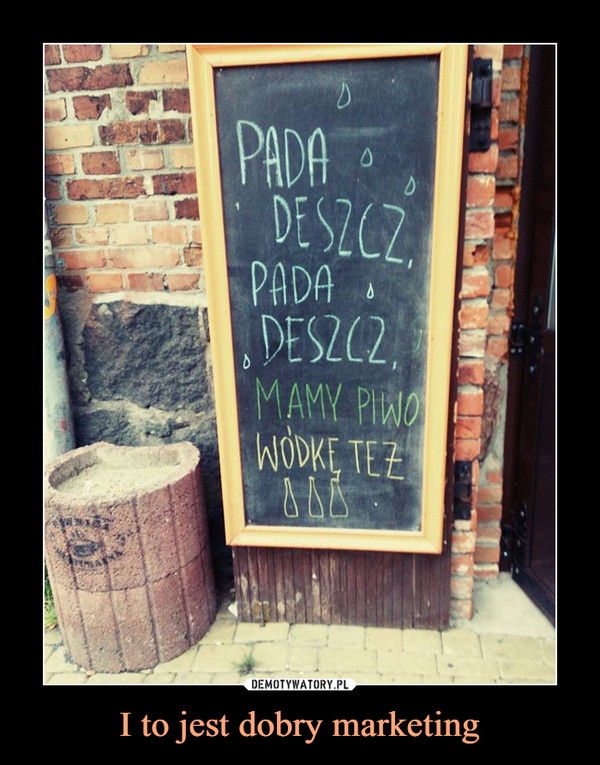 PADA
DESZCZ,
PADA
DESZCZ,
MAMY PIWO
WÓDKĘ TEŻ
DEMOTYWATORY.PL
I to jest dobry marketing